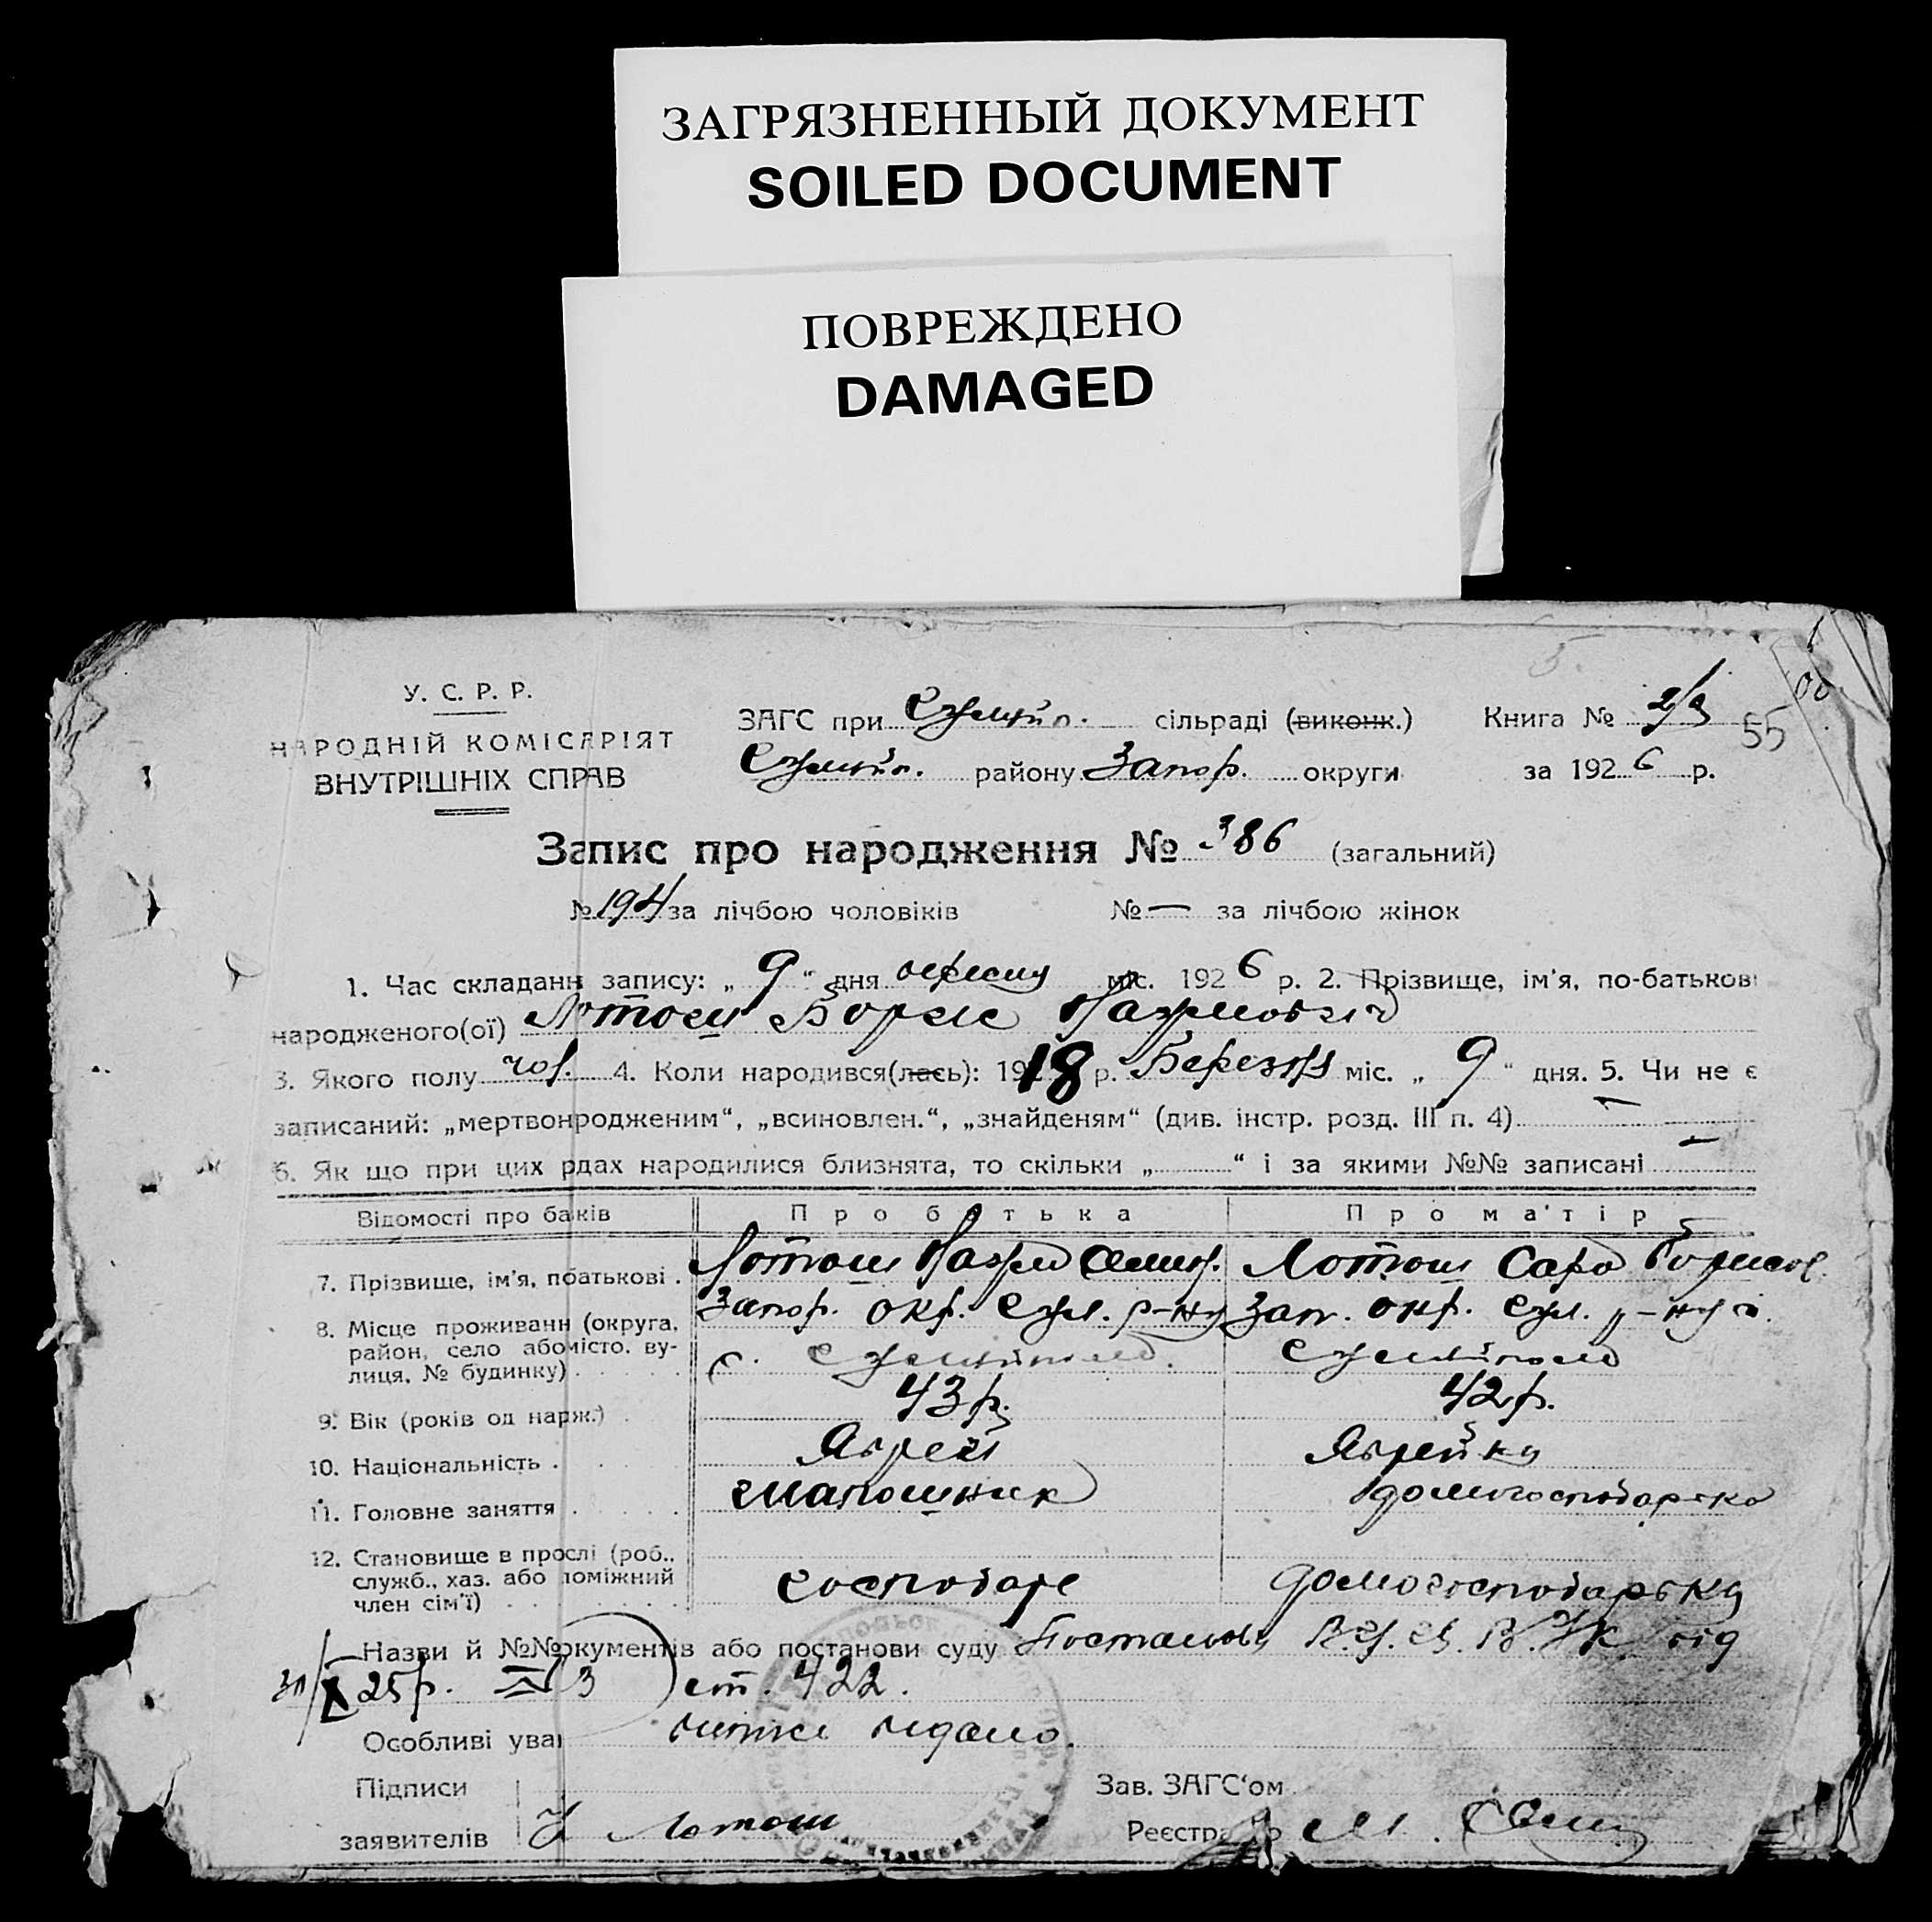 ЗАГРЯЗНЕННЫЙ ДОКУМЕНТ
SOILED DOCUMENT
ПОВРЕЖДЕНО
DAMAGED
У. С. Р. Р.
НАРОДНІЙ КОМІСАРІЯТ
ВНУТРІШНІХ СПРАВ
ЗАГС при сільраді (виконк.)
району Запор. округи
Книга № 2/а 55
за 1926 р.
Запис про народження № 386 (загальний)
№ 194 за лічбою чоловіків № — за лічбою жінок
1. Час складанн запису: „ 9 “ дня вересня міс. 1926 р. 2. Прізвище, ім'я, по-батькові
народженого(ої) Лотош Борис
3. Якого полу чол. 4. Коли народився(лась): 1918 р. Березня міс. „ 9 “ дня. 5. Чи не є
записаний: „мертвонродженим“, „всиновлен.“, „знайденям“ (див. інстр. розд. III п. 4) —
6. Як що при цих рдах народилися близнята, то скільки „ “ і за якими №№ записані —
Відомості про баків Про батька Про матір
7. Прізвище, ім'я, пбатькові . Лотош Лотош Сара Борисов.
8. Місце проживанн (округа, Запор. окр. р-ну Зап. окр. р-ну
район, село або місто, ву-
лиця, № будинку) с.
9. Вік (років од нарж.) 43 р. 42 р.
10. Національність . Яврей Яврейка
11. Головне заняття шапошник домогосподарка
12. Становище в прослі (роб.,
служб., хаз. або поміжний
член сім'ї) господарь домогосподарька
Назви й №№ окументів або постанови суду Постанова від
31/X 25 р. № 3 ст. 422.
Особливі уваг
Підписи Зав. ЗАГС'ом
заявителів Лотош Реєстратор